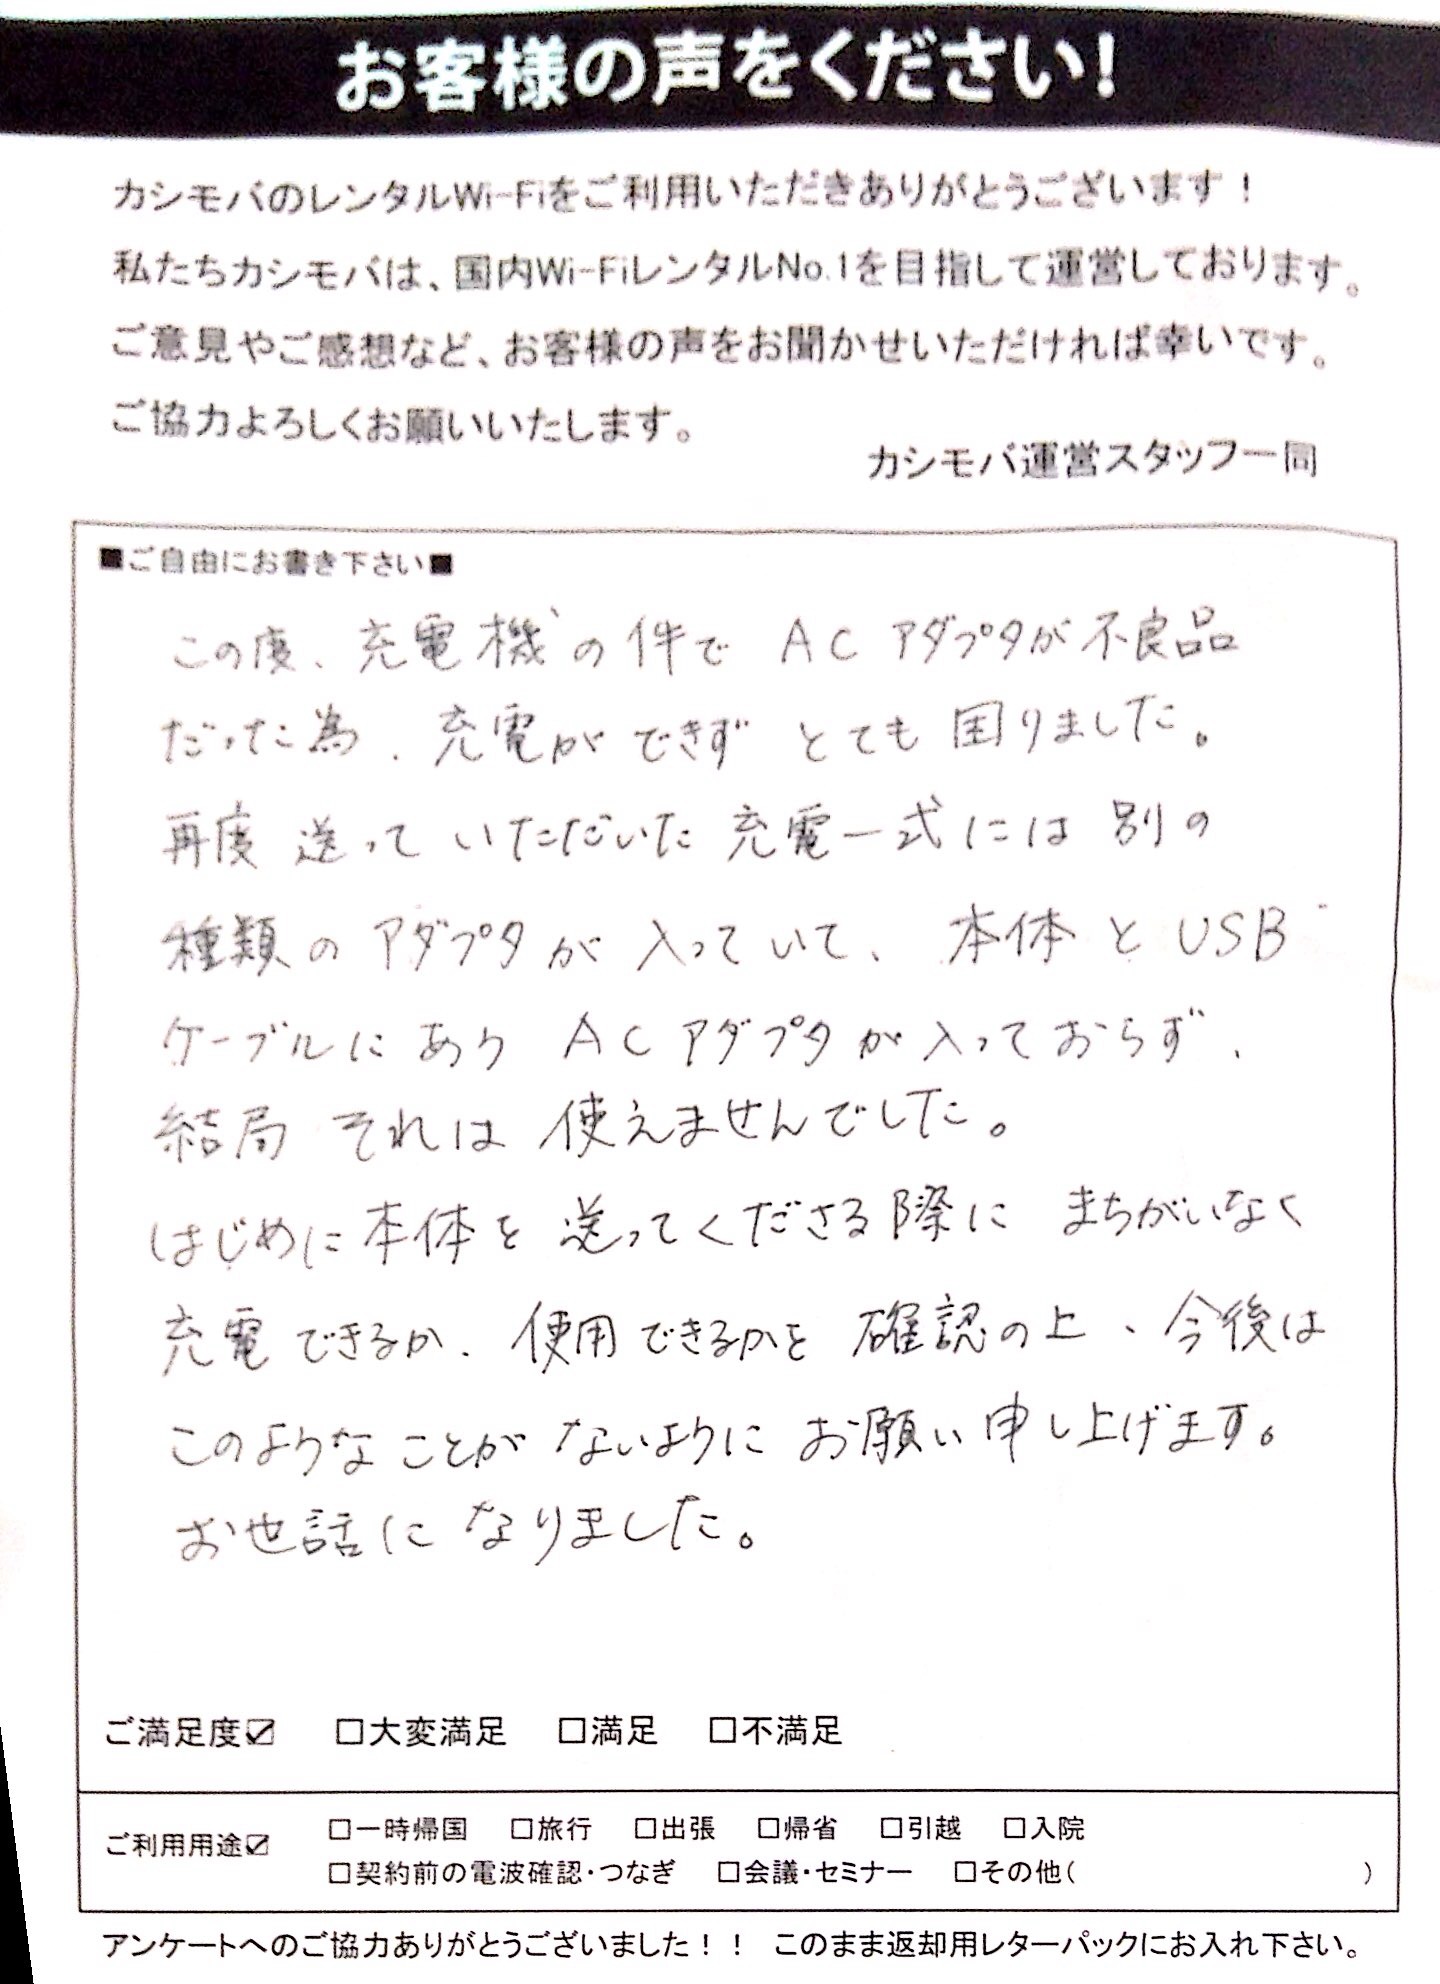 お客様の声をください！
カシモバのレンタルWi-Fiをご利用いただきありがとうございます！
私たちカシモバは、国内Wi-FiレンタルNo.1を目指して運営しております。
ご意見やご感想など、お客様の声をお聞かせいただければ幸いです。
ご協力よろしくお願いいたします。
カシモバ運営スタッフ一同
■ご自由にお書き下さい■
この度、充電機の件で ACアダプタが不良品
だった為、充電ができず とても困りました。
再度 送って いただいた 充電一式には 別の
種類の アダプタが 入っていて、本体とUSB
ケーブルにあり ACアダプタが入っておらず、
結局 それは 使えませんでした。
はじめに本体を 送ってくださる際に まちがいなく
充電できるか、使用できるかを 確認の上、今後は
このような ことが ないように お願い申し上げます。
お世話に なりました。
ご満足度☑ □大変満足 □満足 □不満足
ご利用用途☑ □一時帰国 □旅行 □出張 □帰省 □引越 □入院
□契約前の電波確認・つなぎ □会議・セミナー □その他( )
アンケートへのご協力ありがとうございました！！ このまま返却用レターパックにお入れ下さい。